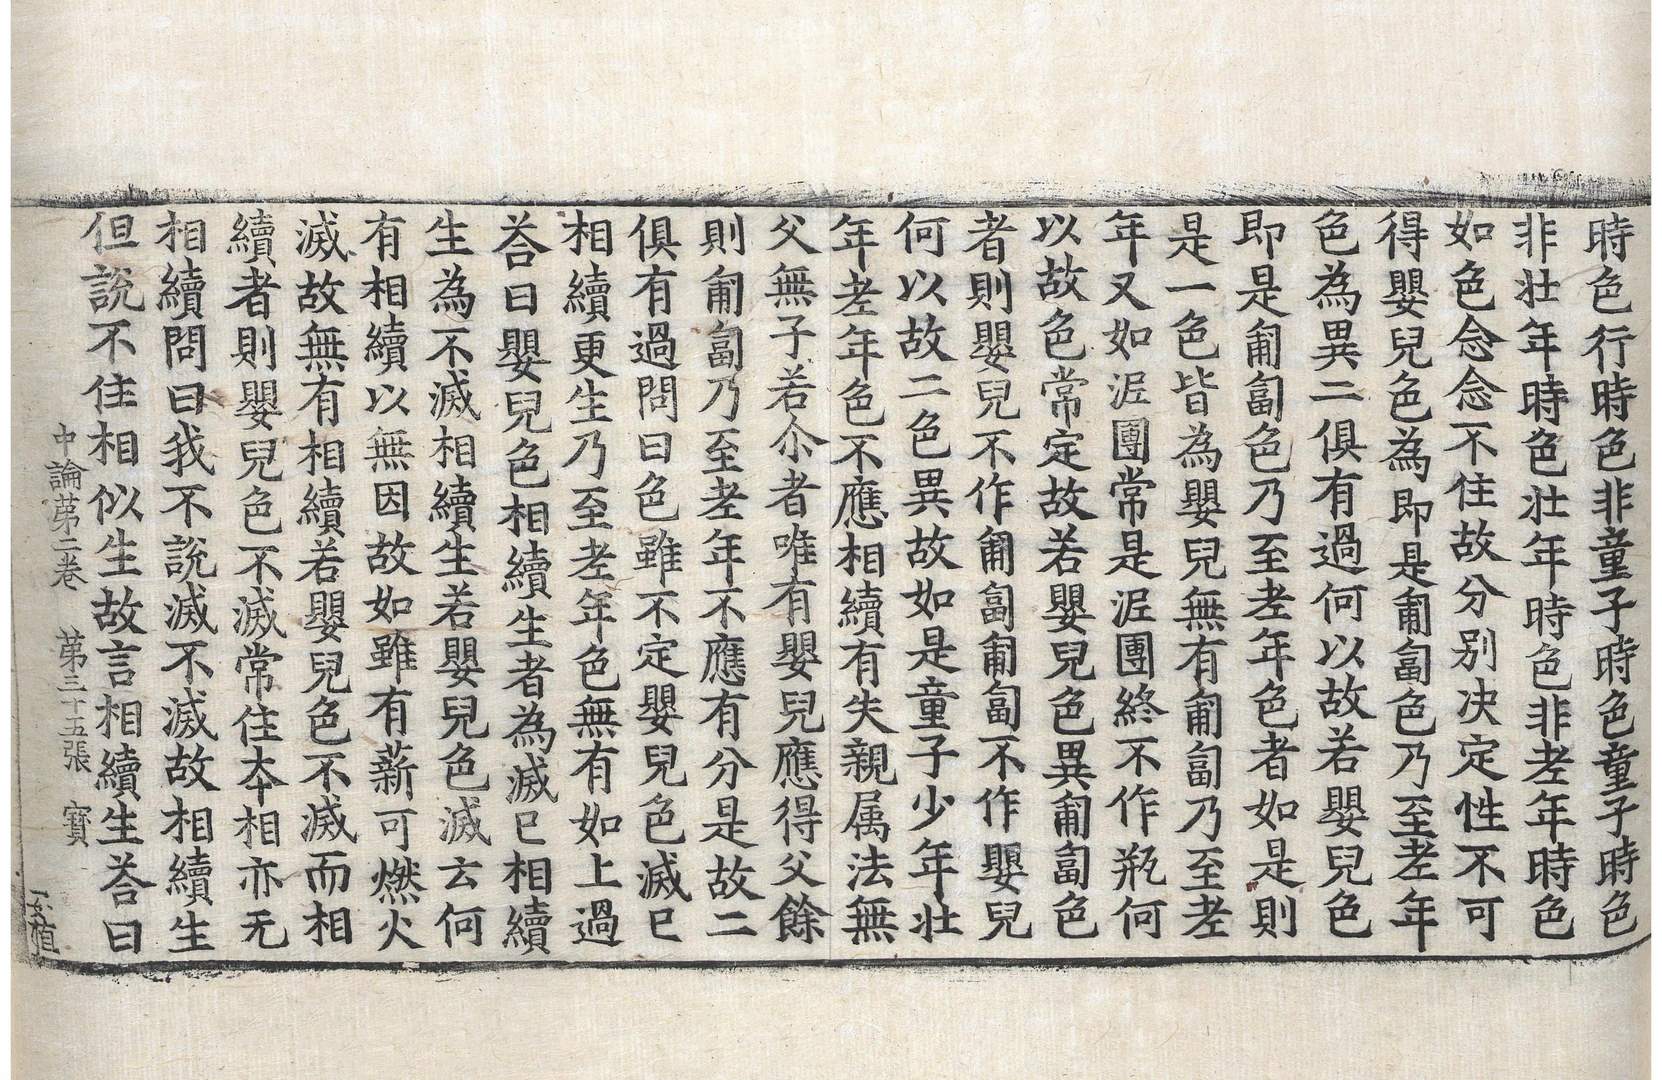 時色行時色非童子時色童子時色
非壮年時色壮年時色非老年時色
如色念念不住故分别决定性不可
得嬰兒色為即是匍匐色乃至老年
色為異二俱有過何以故若嬰兒色
即是匍匐色乃至老年色者如是則
是一色皆為嬰兒無有匍匐乃至老
年又如泥團常是泥團終不作瓶何
以故色常定故若嬰兒色異匍匐色
者則嬰兒不作匍匐匍匐不作嬰兒
何以故二色異故如是童子少年壮
年老年色不應相續有失親属法無
父無子若尒者唯有嬰兒應得父餘
則匍匐乃至老年不應有分是故二
俱有過問曰色雖不定嬰兒色滅已
相續更生乃至老年色無有如上過
荅曰嬰兒色相續生者為滅已相續
生為不滅相續生若嬰兒色滅云何
有相續以無因故如雖有薪可燃火
滅故無有相續若嬰兒色不滅而相
續者則嬰兒色不滅常住本相亦无
相續問曰我不說滅不滅故相續生
但說不住相似生故言相續生荅曰
中論苐二卷 苐三十五張 寶